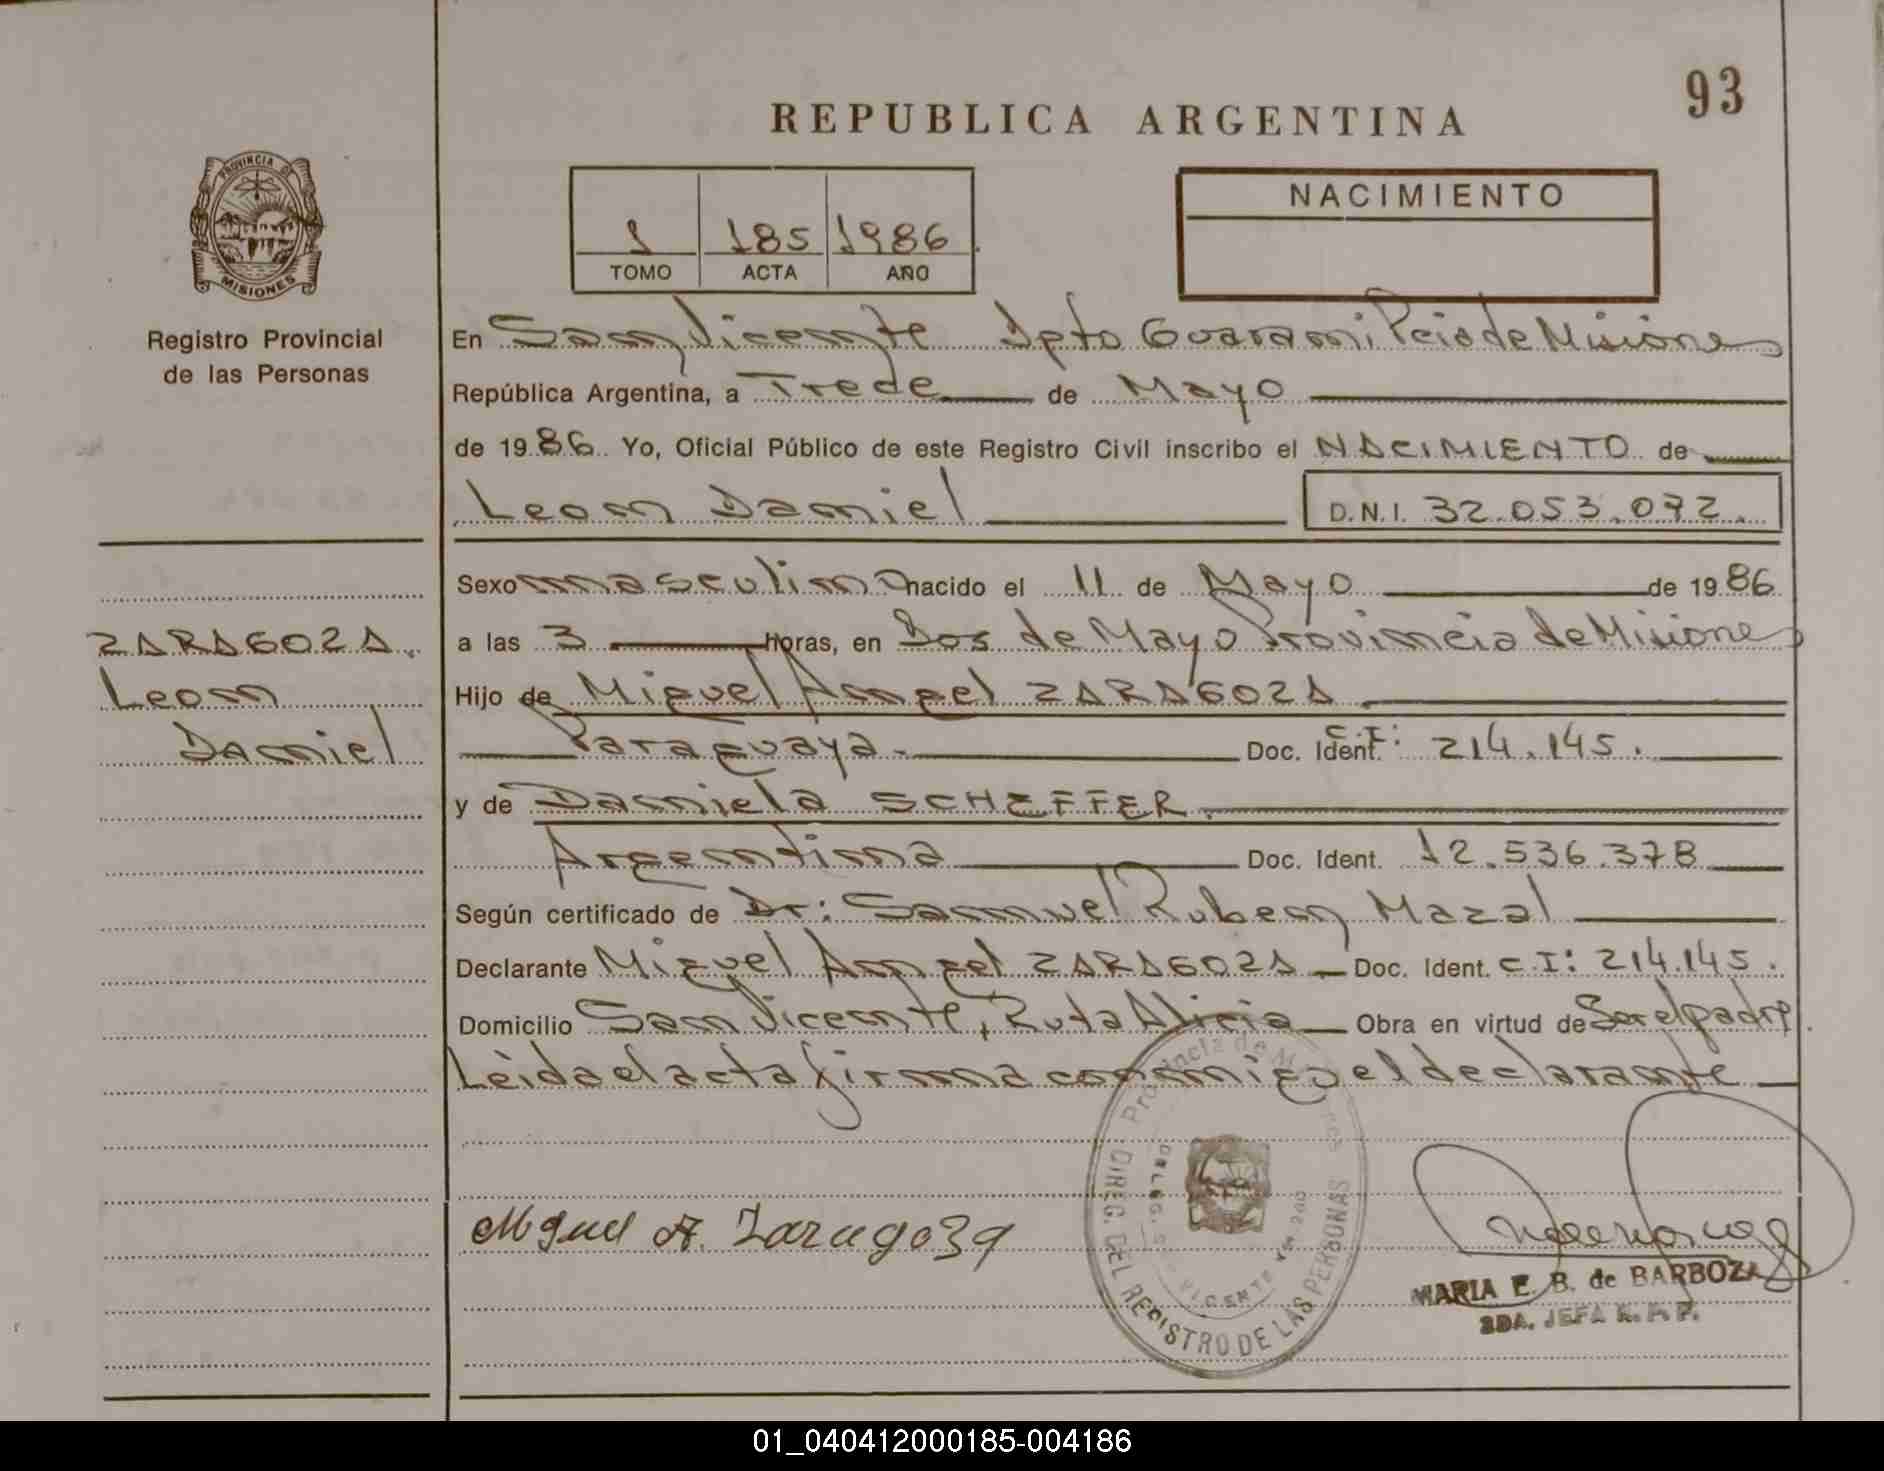 93
REPUBLICA ARGENTINA
PROVINCIA DE
MISIONES
1 185 1986
TOMO ACTA AÑO
NACIMIENTO
Registro Provincial
de las Personas
En San Vicente Dpto Guarani Pcia de Misiones
República Argentina, a Trece de Mayo
de 1986 Yo, Oficial Público de este Registro Civil inscribo el NACIMIENTO de
Leon Daniel D.N.I. 32.053.072.
Sexo masculino nacido el 11 de Mayo de 1986
a las 3 horas, en Dos de Mayo Provincia de Misiones
Hijo de Miguel Angel ZARAGOZA
Paraguaya. Doc. Ident. C.I: 214.145.
y de Daniela SCHEFFER
Argentina Doc. Ident. 12.536.378
Según certificado de Dr: Samuel Ruben Mazal
Declarante Miguel Angel ZARAGOZA Doc. Ident. C.I: 214.145.
Domicilio San Vicente, Ruta Alicia Obra en virtud de Ser el padre
Leida el acta firma conmigo el declarante
ZARAGOZA.
Leon
Daniel
Miguel A. Zaragoza
Provincia de Misiones
DIREG. DEL REGISTRO DE LAS PERSONAS
DELEG. VICENTE
MARIA E. B. de BARBOZA
2DA. JEFA R. P. P.
01_040412000185-004186